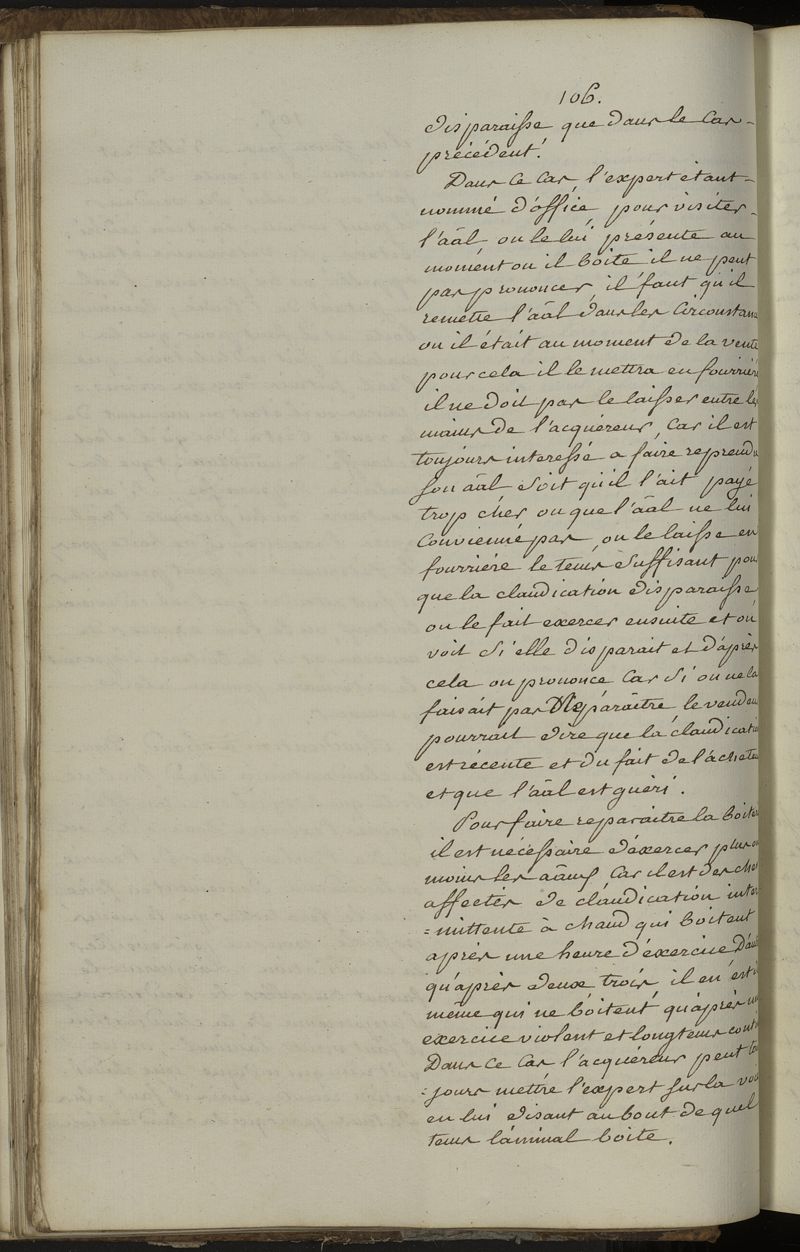 106.
disparaisse que dans le Cas =
précédent.
Dans Ce Cas, l'expert étant =
nommé d'office, pour visiter =
l'aãl on le lui présente au
moment ou il boite il ne peut
pas prononcer, il faut qu'il
remette l'aãl dans les Circonstan
ou il était au moment de la vente
pour cela il le mettra en fourrièr
il ne doit pas le laisser entre les
mains de l'acquéreur, Car il est
toujours interessé a faire reprendr
son aãl soit qu'il l'ait payé
trop chér ou que l'aãl ne lui
Convienne pas, on le laisse en
fourriére le tems suffisant pou
que la claudication disparaisse
on le fait exercer ensuite et on
voit si elle disparait et d'après
cela on prononce Car si on ne la
faisait pas disparaître le vendeu
pourrait dire que la claudicati
est récente et du fait de l'achete
et que l'aãl est guèri.
Pour faire reparaitre la boiter
il est nécessaire d'éxercer plus ou
moins les aãux Car il est des che
affectés de claudication inter
= mittente à chaud qui boitent
après une heure d'éxercice D'au
qu'après deux trois, il en est
même qui ne boitent qu'après un
exercice violent et longtems conti
Dans Ce Cas l'acquéreur peut to
= jours mettre l'expert sur la voi
en lui disant au bout de quel
tems l'animal boite.